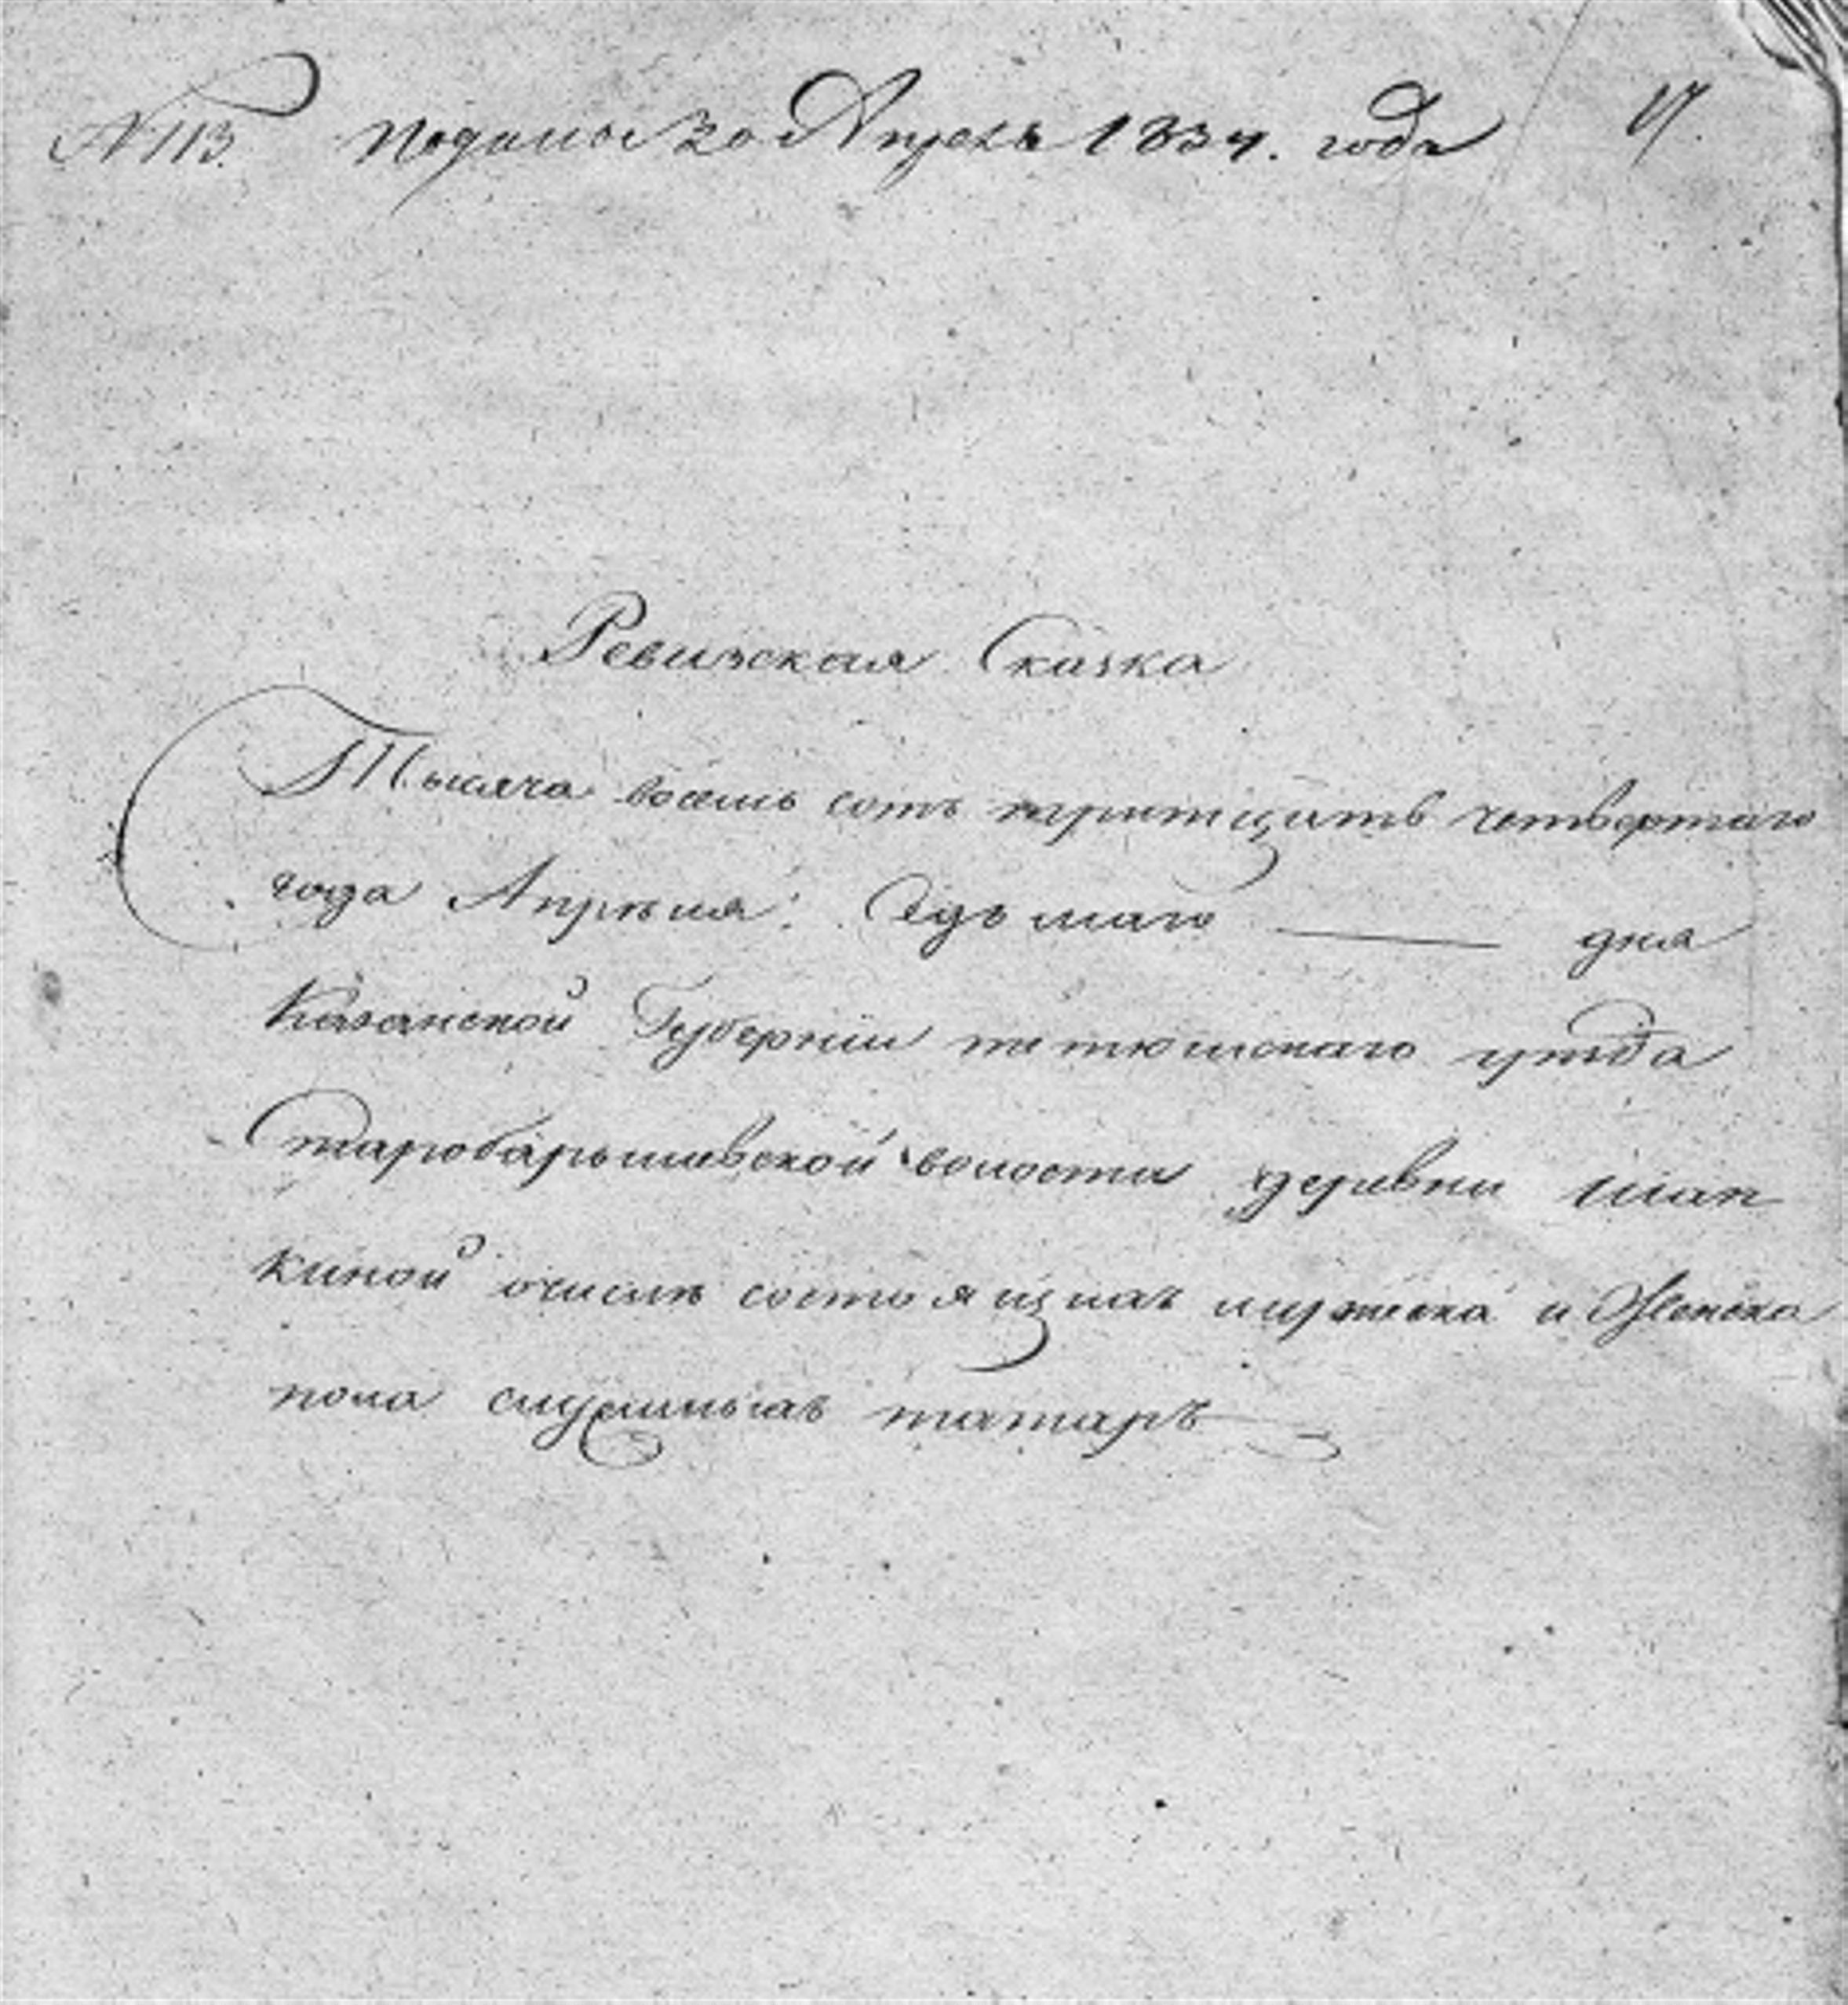 № 113. Подана 30 Апреля 1834. года 17.
Ревизская Сказка
Тысяча восемь сотъ тритцать четвертаго
года Апреля: Седьмаго — дня
Казанской Губернии тетюшскаго уезда
Старобарышевской волости деревни шап
киной очисле состоящихъ мужеска и Женска
пола служилыхъ татаръ